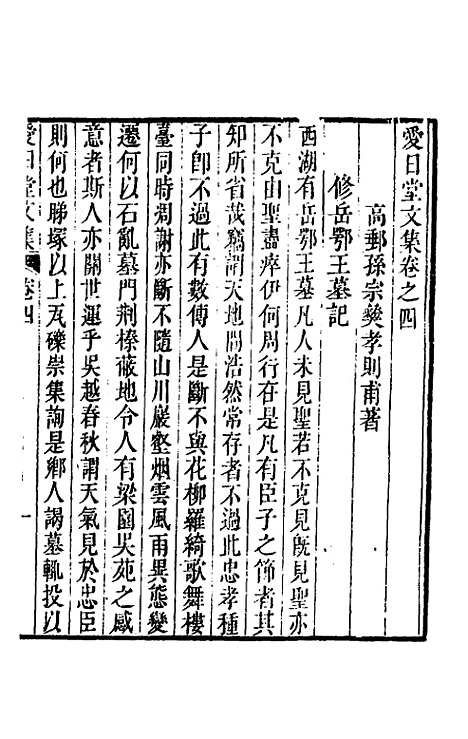 愛日堂文集卷之四
高郵孫宗彝孝則甫著
修岳鄂王墓記
西湖有岳鄂王墓凡人未見聖若不克見旣見聖亦
不克由聖盡瘁伊何周行在是凡有臣子之節者其
知所省哉竊謂天地間浩然常存者不過此忠孝種
子卽不過此有數傳人是斷不與花柳羅綺歌舞樓
臺同時凋謝亦斷不隨山川巖壑烟雲風雨異態變
遷何以石亂墓門荆榛蔽地令人有梁園吳苑之感
意者斯人亦關世運乎吳越春秋謂天氣見於忠臣
則何也睇塚以上瓦礫崇集詢是鄉人謁墓輒投以
愛日堂文集 卷四 一